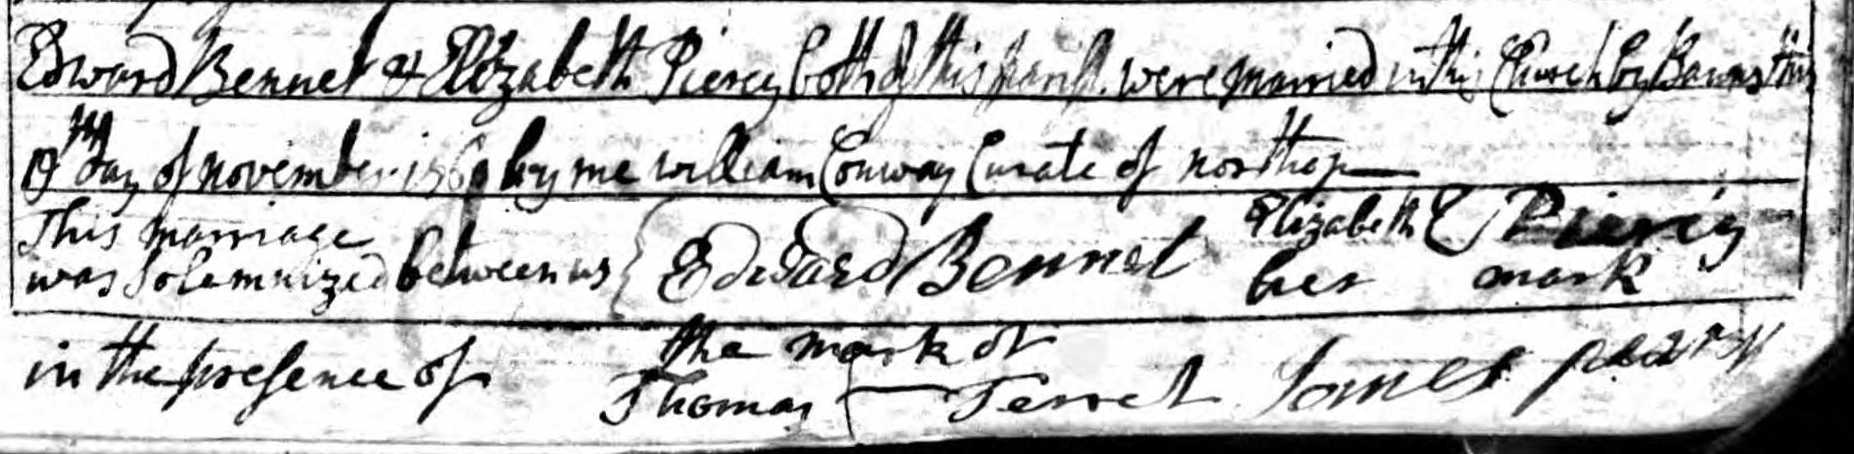 Edward Bennet & Elizabeth Piercy both of this parish were married in this Church by Banns this
19th Day of november by me william Conway Curate of northop
This marriage
was Solemnized between us Edward Bennet Elizabeth Piercy
her mark
in the presence of the mark of
Thomas James